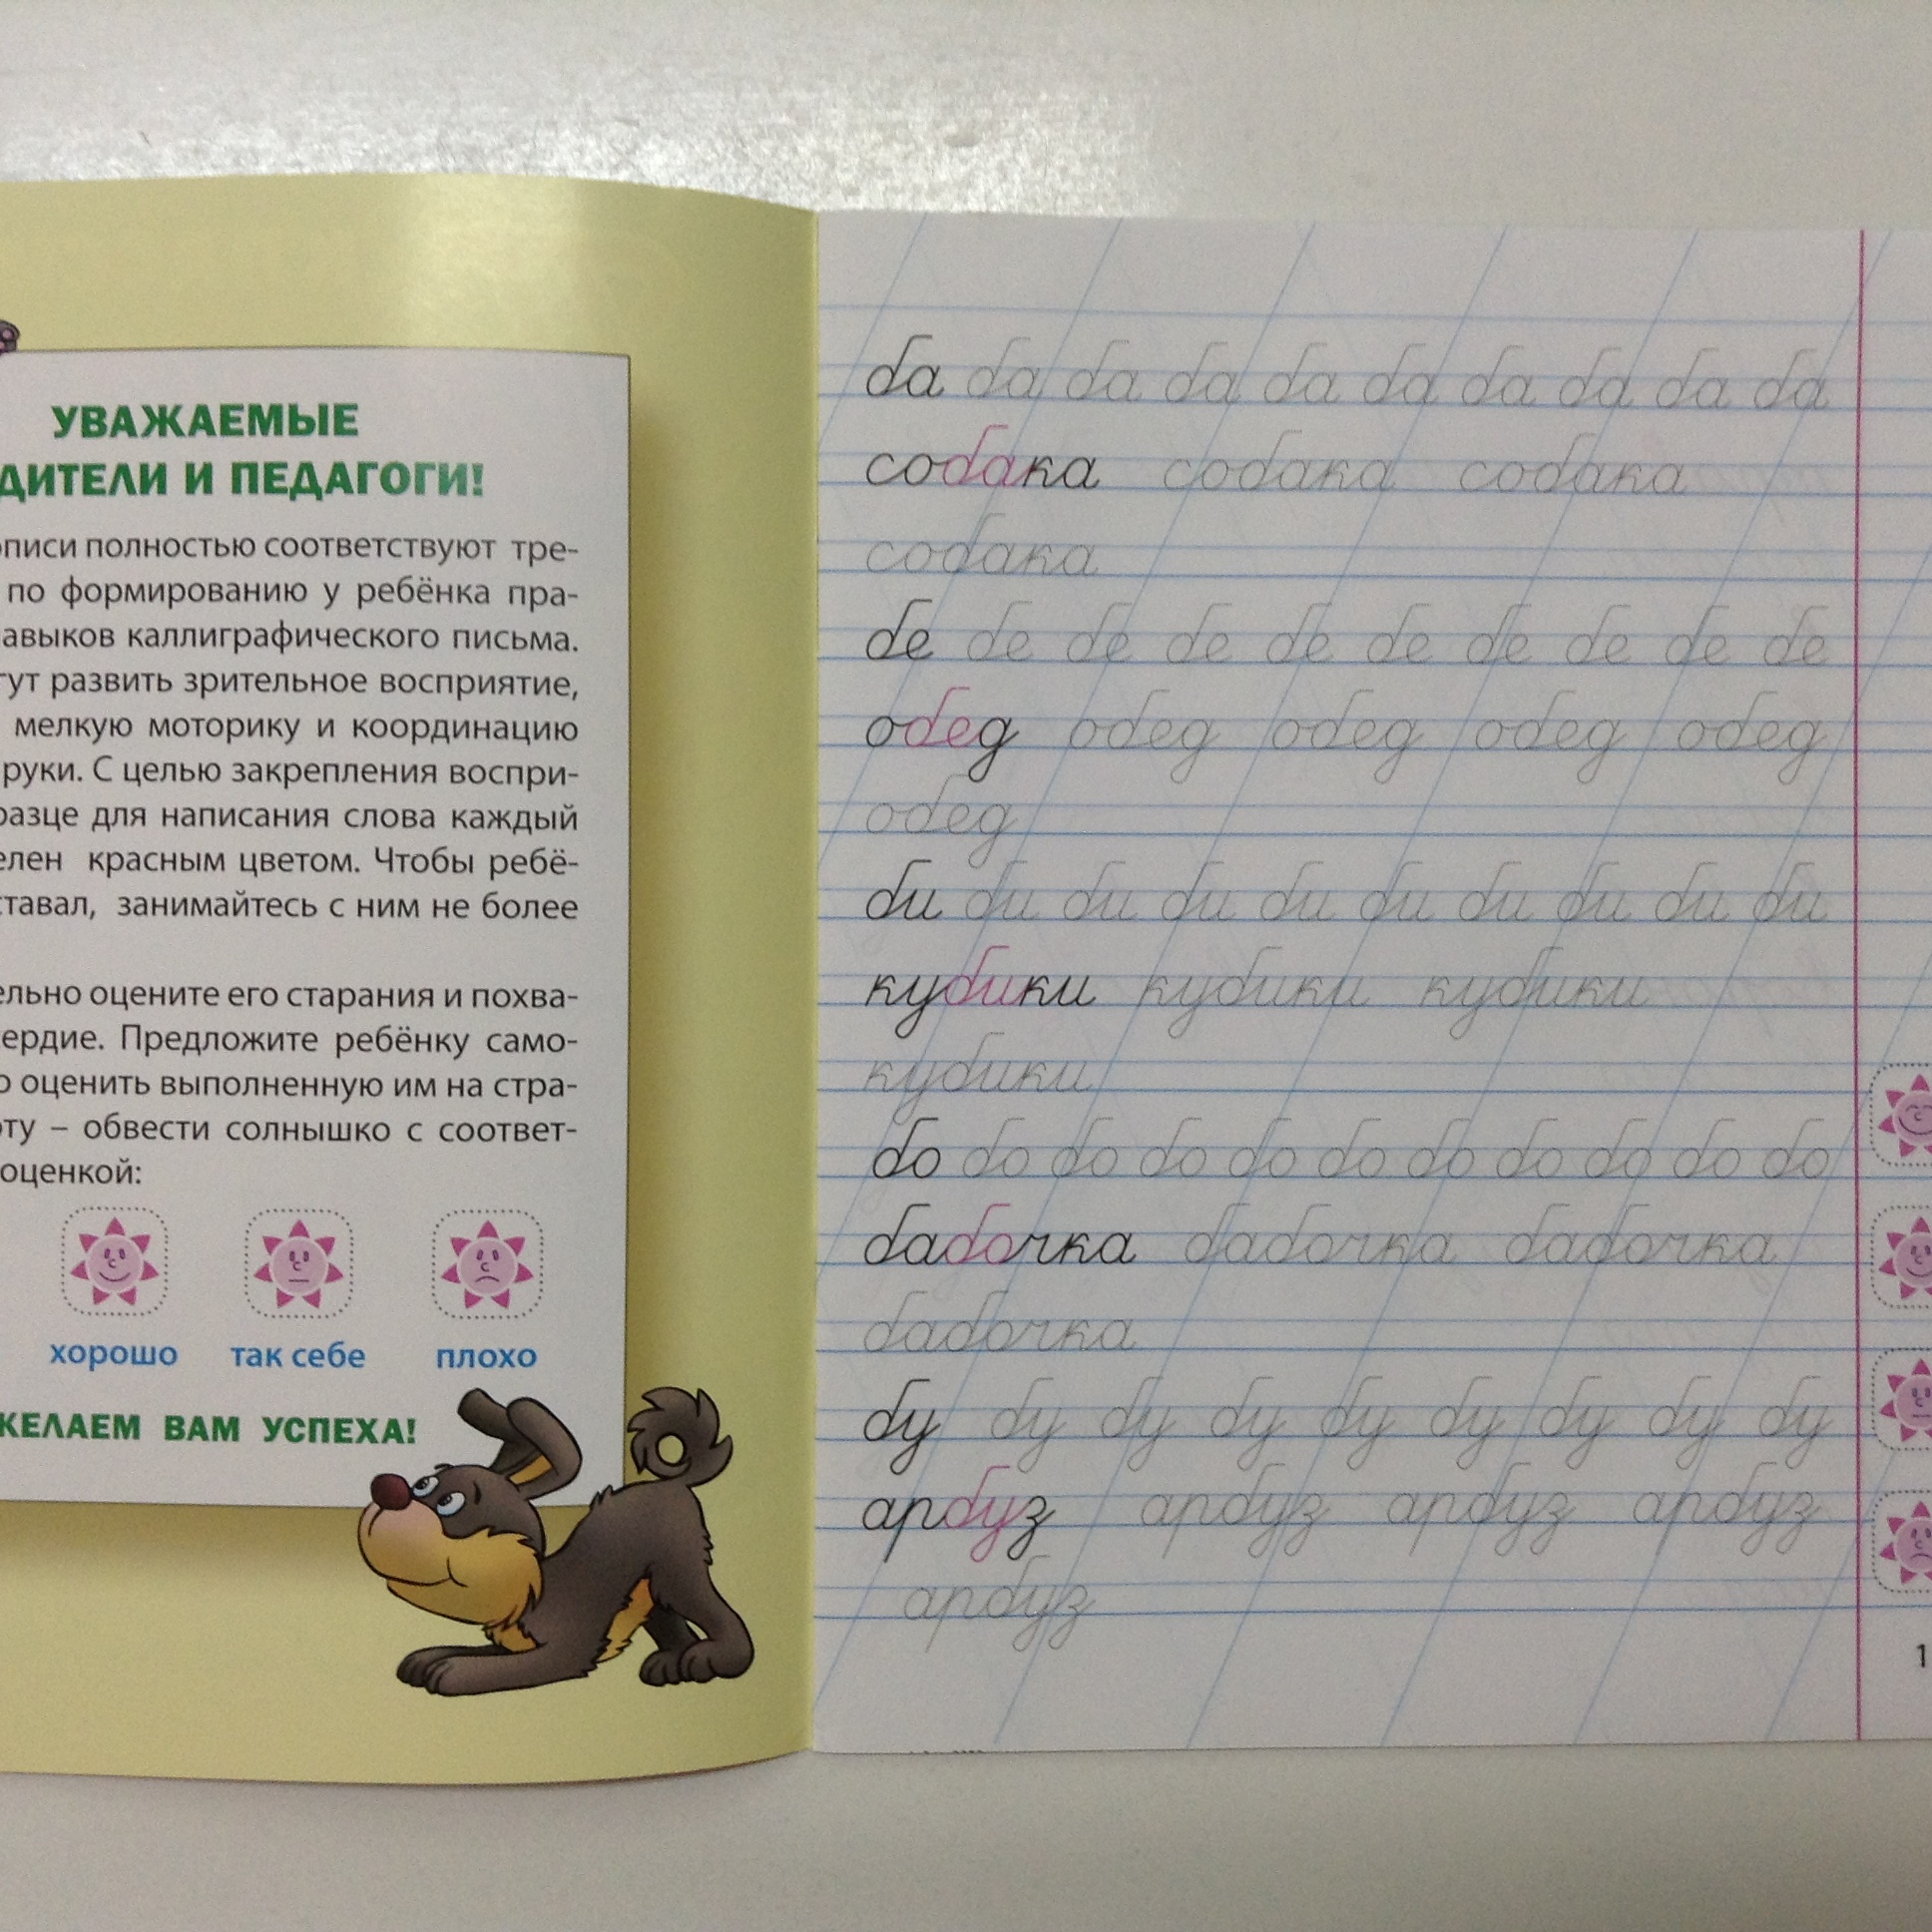 УВАЖАЕМЫЕ
ДИТЕЛИ И ПЕДАГОГИ!
описи полностью соответствуют тре-
по формированию у ребёнка пра-
авыков каллиграфического письма.
гут развить зрительное восприятие,
мелкую моторику и координацию
руки. С целью закрепления воспри-
разце для написания слова каждый
елен красным цветом. Чтобы ребё-
ставал, занимайтесь с ним не более
ельно оцените его старания и похва-
ердие. Предложите ребёнку само-
о оценить выполненную им на стра-
оту – обвести солнышко с соответ-
оценкой:
хорошо так себе плохо
ЖЕЛАЕМ ВАМ УСПЕХА!
ба ба ба ба ба ба ба ба ба ба
собака собака собака
собака
бе бе бе бе бе бе бе бе бе бе
обед обед обед обед обед
обед
би би би би би би би би би би
кубики кубики кубики
кубики
бо бо бо бо бо бо бо бо бо бо бо
бабочка бабочка бабочка
бабочка
бу бу бу бу бу бу бу бу бу
арбуз арбуз арбуз арбуз
арбуз
1